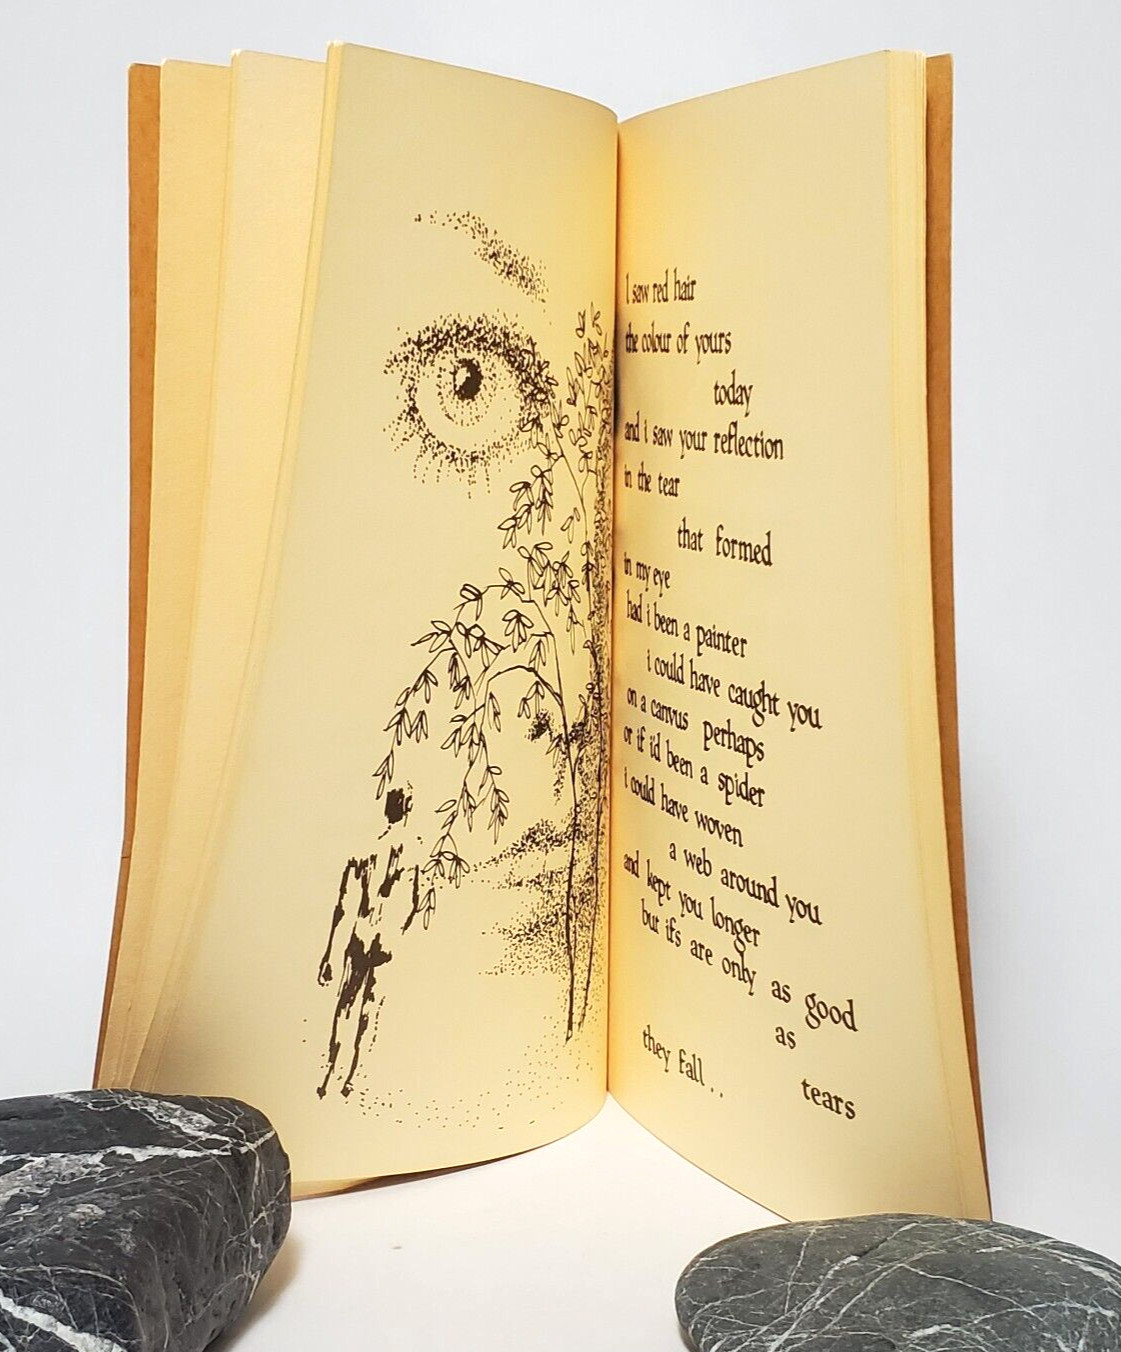 I saw red hair
the colour of yours
today
and i saw your reflection
in the tear
that formed
in my eye
had i been a painter
i could have caught you
on a canvus perhaps
or if i'd been a spider
i could have woven
a web around you
and kept you longer
but if's are only as good
as
tears
they fall . .